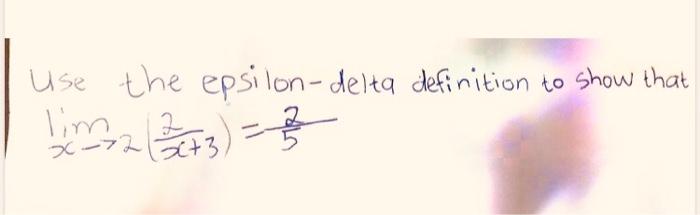 Use the epsilon-delta definition to show that
lim x->2 (2/(x+3)) = 2/5